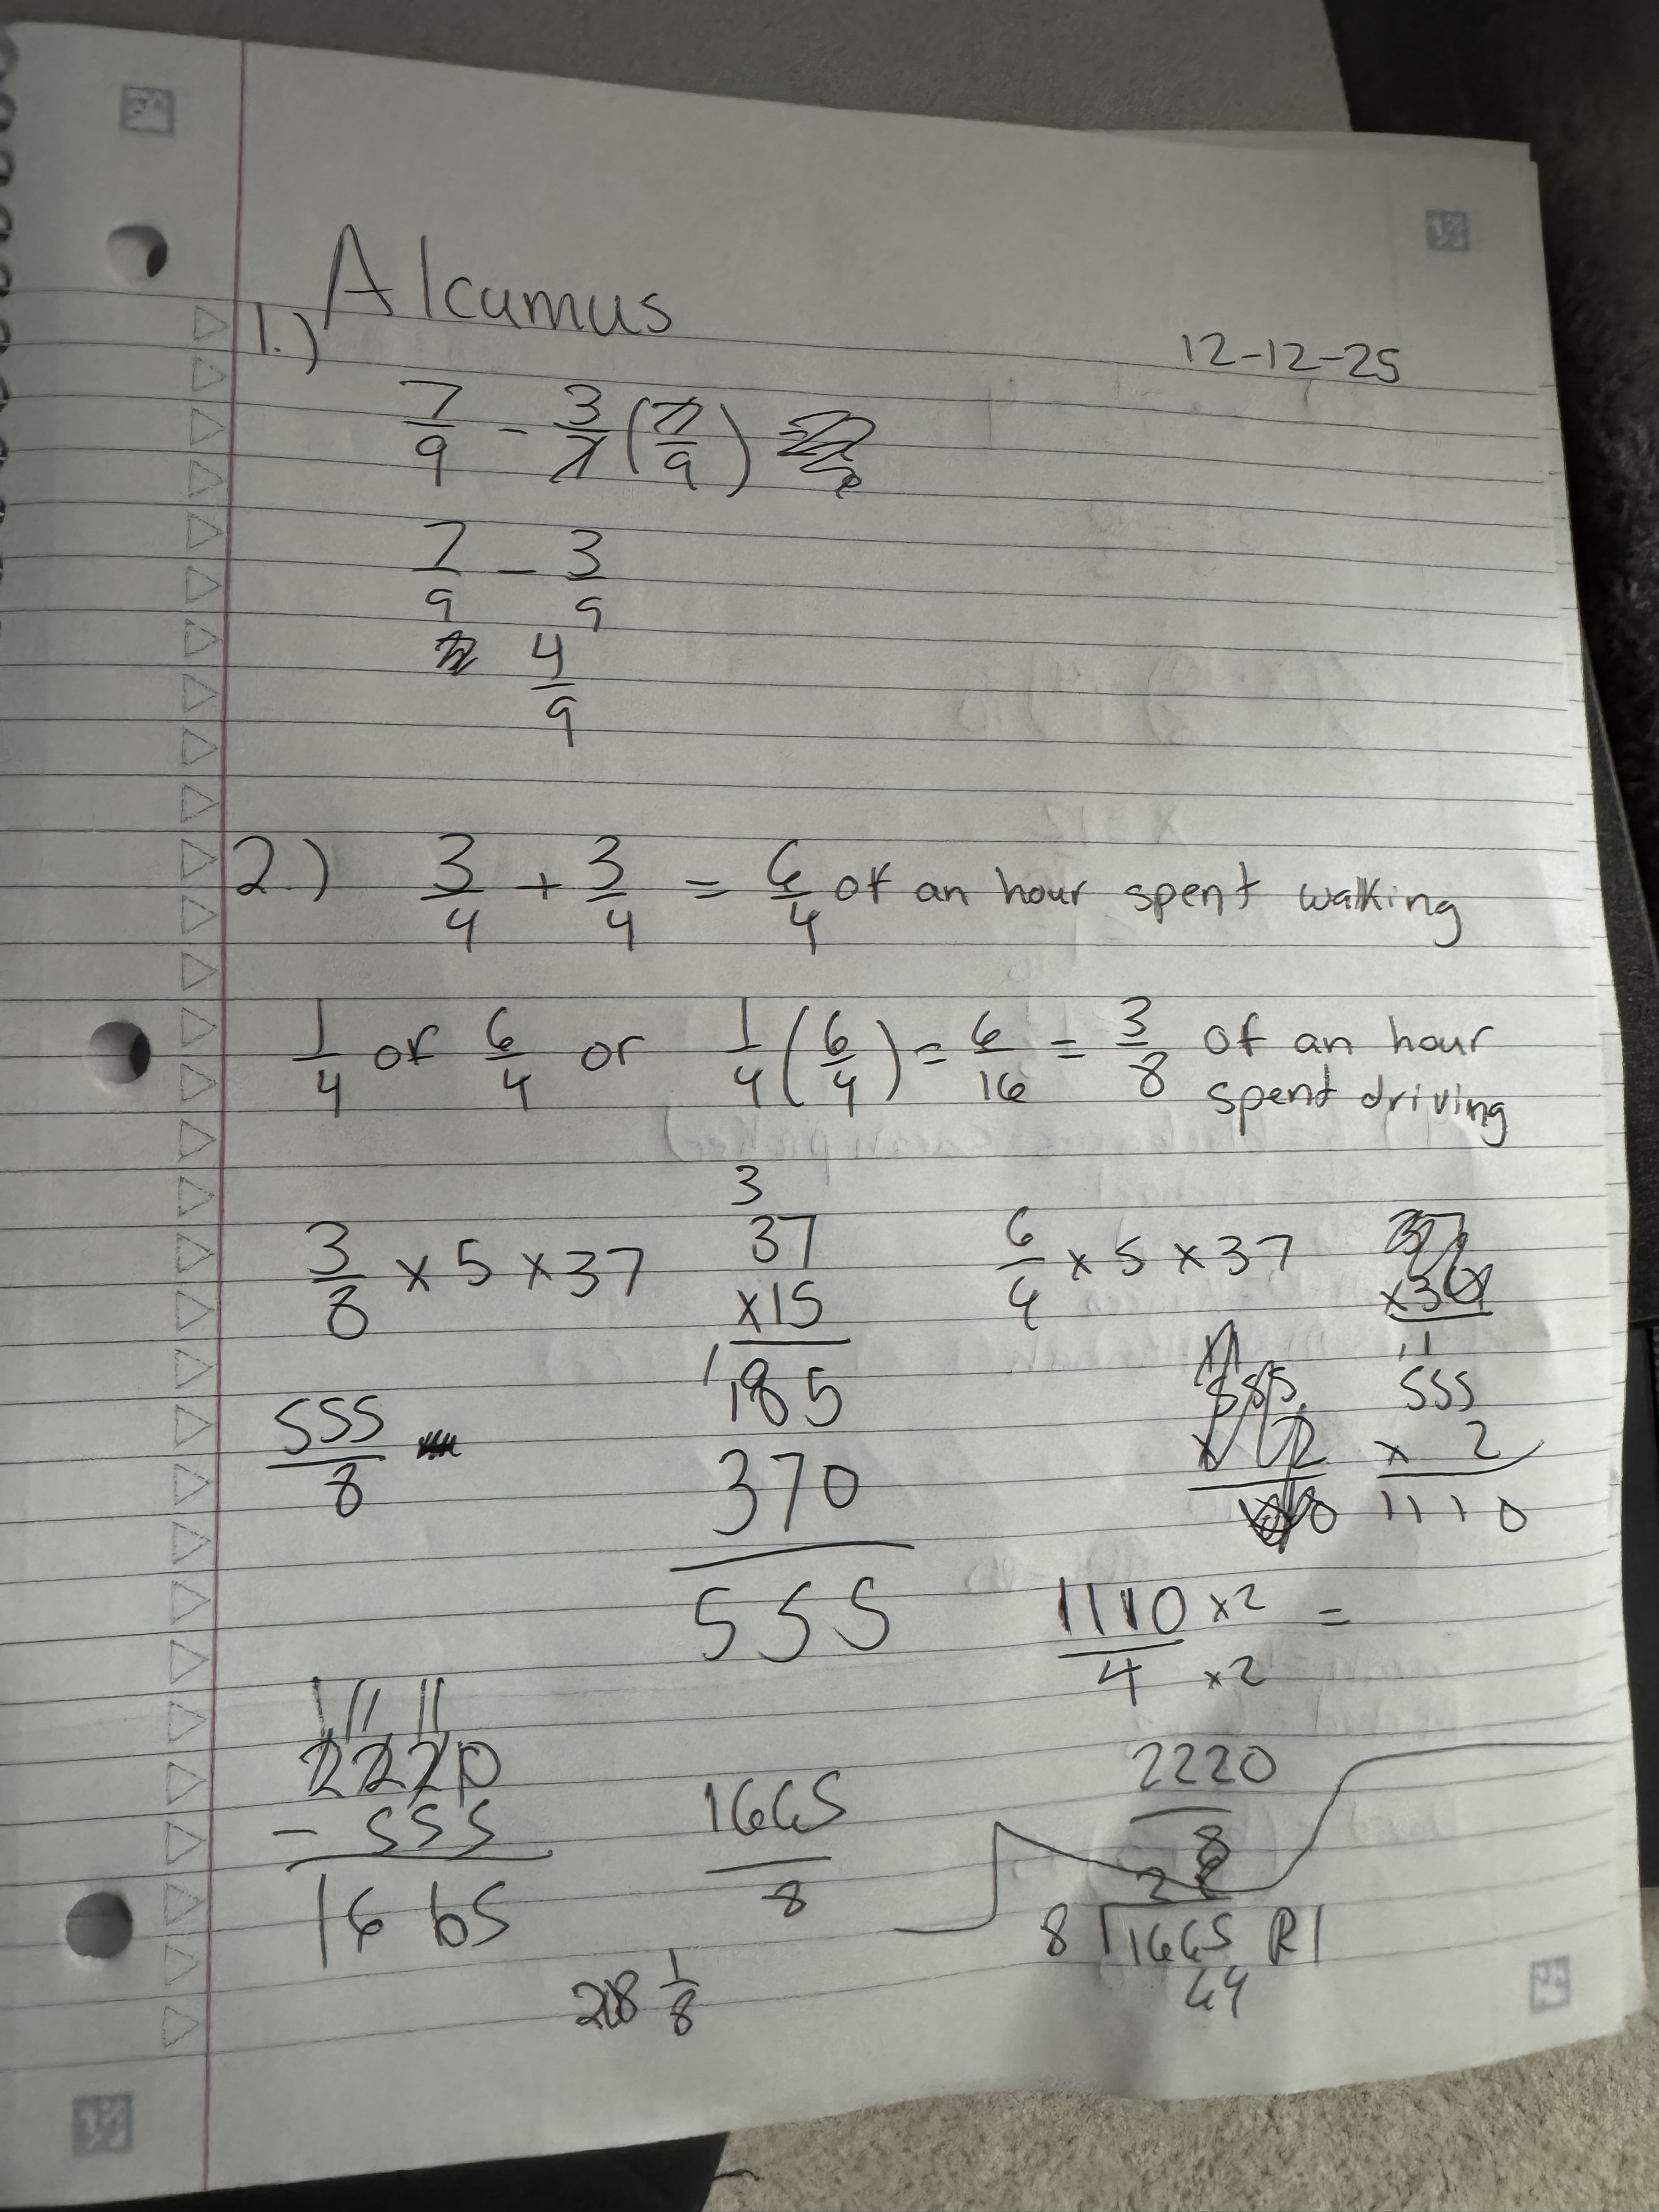 Alcumus
1.)
12-12-25
7/9 - 3/7 (7/9)
7/9 - 3/9
4/9
2.) 3/4 + 3/4 = 6/4 of an hour spent walking
1/4 of 6/4 or 1/4 (6/4) = 6/16 = 3/8 of an hour
spent driving
3/8 x 5 x 37
3
37
x15
1
185
370
555
555/8
6/4 x 5 x 37
11
555
x 2
1110
1110/4 x2/x2 =
2220/8
2220
- 555
1665
1665/8
8 1665 R1
64
1/8